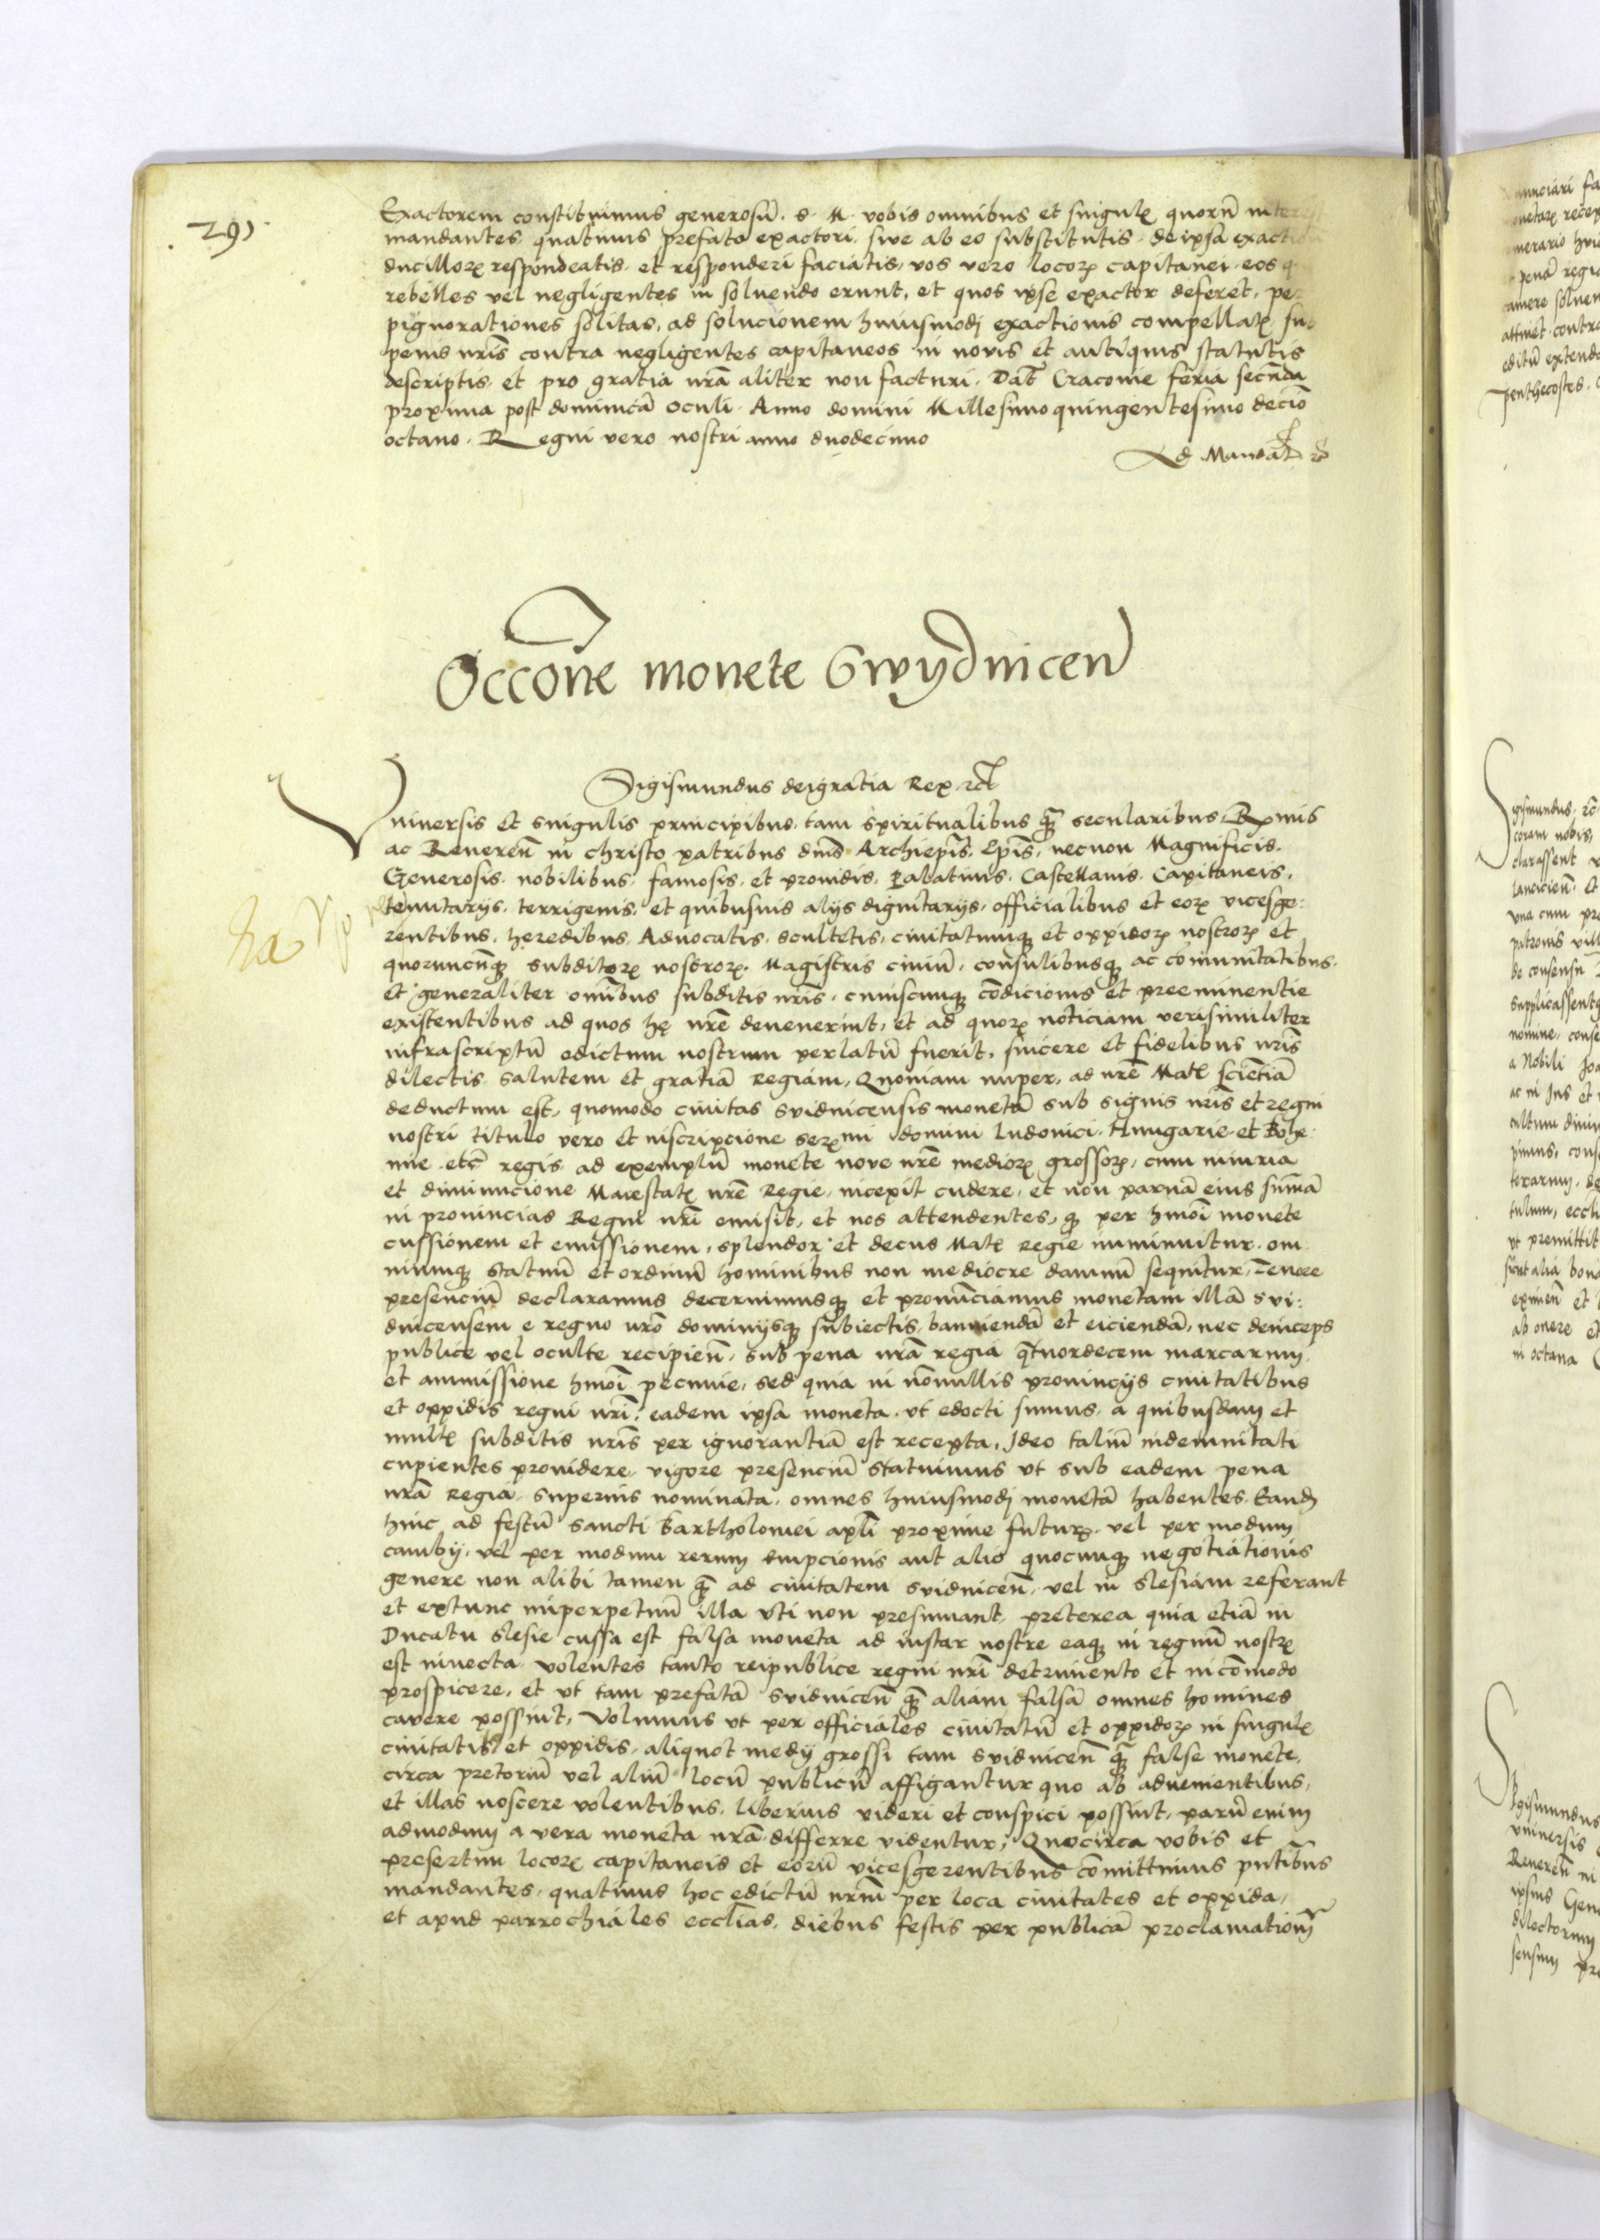 291
Exactorem constituimus generosũ. S. N. vobis omnibus et singulꝭ quorũ
mandantes quatinus prefato exactori sive ab eo substitutis de ipsa
ducilloꝝ respondeatis et responderi faciatis, vos vero locoꝝ capitanei eos
rebelles vel negligentes in soluendo erunt, et quos ipse exactor deferet, per
pignorationes solitas, ad solucionem huiusmodj exactionis compellatꝭ sub
penis nr̃is contra negligentes capitaneos in novis et antiquis statutis
descriptis. et pro gratia nr̃a aliter non facturi. Dat̃ Cracovie feria secũda
proxima post dominicã oculi. Anno domini Millesimo quingentesimo deciõ
octavo. Regni vero nostri anno duodecimo
Ad Mandat̃
Occõne monete Swydnicen̄
Sigismundus deigratia Rex ⁊ct̃
Vniversis et singulis principibus, tam spiritualibus q̃ꝫ secularibus R̃xmis
ac Reveren̄ in christo patribus dñis Archiep̃is, Ep̃is, necnon Magnificis.
Generosis. nobilibus. famosis. et providis. Palatinis. Castellanis. Capitaneis.
tenutarijs. terrigenis. et quibusuis alijs dignitarijs, officialibus et eoꝝ vicesge:
rentibus, heredibus Aduocatis. scultetis, ciuitatumqꝫ et oppidoꝝ nostroꝝ et
quorumcũqꝫ subditoꝝ nostroꝝ. Magistris ciuiũ, consulibusqꝫ ac comunitatibus.
et generaliter omĩbus subditis nr̃is. cuiuscunqꝫ cõdicionis et preeminentie
existentibus ad quos hę nr̃e deuenerint, et ad quoꝝ noticiam verisimiliter
infrascriptũ edictum nostrum perlatũ fuerit, sincere et fidelibus nr̃is
dilectis salutem et gratiã Regiam, Quoniam nuper, ad nr̃e Matꝭ sciẽtiã
deductum est, quomodo ciuitas svidnicensis monetã sub signis nr̃is et regni
nostri titulo vero et inscripcione serꝫmi domini ludouici. Hungarie et Bohe:
mie. etc̃ regis ad exemplũ monete nove nr̃e medioꝝ grossoꝝ, cum iniuria
et diminucione Maiestatꝭ nr̃e Regie, incepit cudere, et non parvã eius sum̃ã
in provincias Regni nr̃i emisit, et nos attendentes, qꝫ per hmõi monete
cussionem et emissionem, splendor et decus Matꝭ Regie imminuitur. om
niumqꝫ statuũ et ordinũ hominibus non mediocre damnũ sequitur, Tenore
presenciũ declaramus decernimusqꝫ et pronũciamus monetam illã svi:
dnicensem e regno nr̃o dominijsqꝫ subiectis, banniendã et eiciendã, nec deinceps
publice vel occulte recipien̄, sub pena nr̃a regia q̃tuordecem marcarum
et ammissione hmõi pecunie, sed quia in nõnullis provincijs ciuitatibus
et oppidis regni nr̃i, eadem ipsa moneta, vt edocti sumus, a quibusdam et
multꝭ subditis nr̃is per ignorantiã est recepta, Ideo taliũ indemnitati
cupientes providere, vigore presenciũ statuimus vt sub eadem pena
nr̃a Regia superius nominata, omnes huiusmodj monetã habentes Eand̃
hinc ad festũ sancti Bartholomei apl̃i proxime futurꝭ, vel per modum
cambij, vel per modum rerum Empcionis aut alio quocunqꝫ negotiationis
genere non alibi tamen q̃ꝫ ad ciuitatem svidnicen̄, vel in slesiam referant
et extunc imperpetuũ illa vti non presumant, preterea quia etiã in
Ducatu slesie cussa est falsa moneta ad instar nostre eaqꝫ in regnũ nostrꝭ
est inuecta, volentes tanto reipublice regni nr̃i detrimento et incõmodo
prospicere, et vt tam prefatã svidnicen̄ q̃ꝫ aliam falsã omnes homines
cavere possint, Volumus vt per officiales ciuitatũ et oppidoꝝ in singulꝭ
ciuitatibꝫ et oppidis, aliquot medij grossi tam svidnicen̄ q̃ꝫ false monete,
circa pretoriũ vel aliũ locũ publicũ affigantur quo ab aduenientibus,
et illas noscere volentibus, liberius videri et conspici possint, parũ enim
admodum a vera moneta nr̃a differre videntur, Quocirca vobis et
presertim locoꝝ capitaneis et eorũ vicesgerentibus cõmittimus pñtibus
mandantes, quatinus hoc edictũ nr̃m per loca ciuitates et oppida,
et apud parrochiales eccl̃ias, diebus festis per publicã proclamationẽ